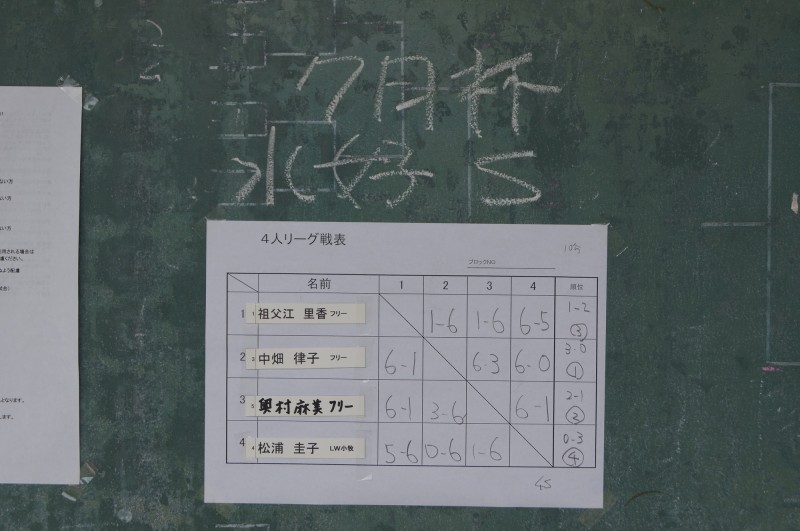 7月杯
S
4人リーグ戦表
ブロックNO
名前 1 2 3 4 順位
1 1 祖父江 里香 フリー 1-6 1-6 6-5 1-2 ③
2 2 中畑 律子 フリー 6-1 6-3 6-0 3-0 ①
3 3 奥村麻美 フリー 6-1 3-6 6-1 2-1 ②
4 4 松浦 圭子 LW小牧 5-6 0-6 1-6 0-3 ④
ない方
ない方
ない方